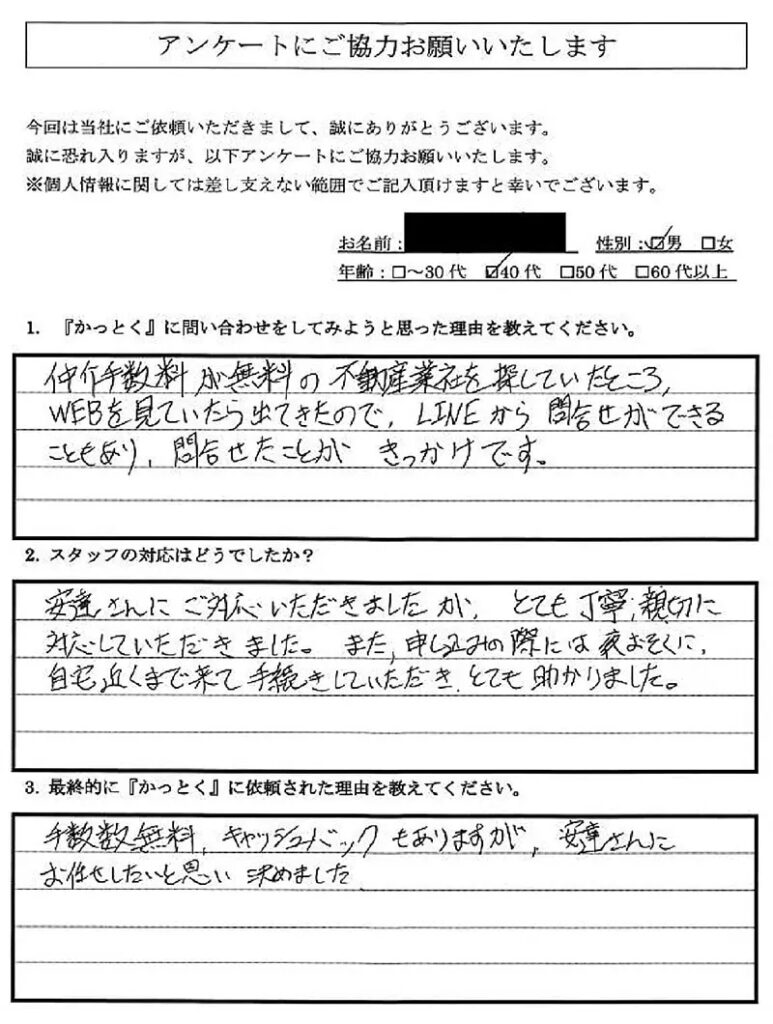 アンケートにご協力お願いいたします
今回は当社にご依頼いただきまして、誠にありがとうございます。
誠に恐れ入りますが、以下アンケートにご協力お願いいたします。
※個人情報に関しては差し支えない範囲でご記入頂けますと幸いでございます。
お名前： 性別：☑男 □女
年齢：□～30代 ☑40代 □50代 □60代以上
1. 『かっとく』に問い合わせをしてみようと思った理由を教えてください。
仲介手数料が無料の不動産業社を探していたところ、
WEBを見ていたら出てきたので、LINEから問合せができる
こともあり、問合せたことがきっかけです。
2. スタッフの対応はどうでしたか？
安達さんにご対応いただきましたが、とても丁寧、親切に
対応していただきました。また、申し込みの際には夜おそくに、
自宅近くまで来て手続きしていただき、とても助かりました。
3. 最終的に『かっとく』に依頼された理由を教えてください。
手数数無料、キャッシュバックもありますが、安達さんに
お任せしたいと思い決めました